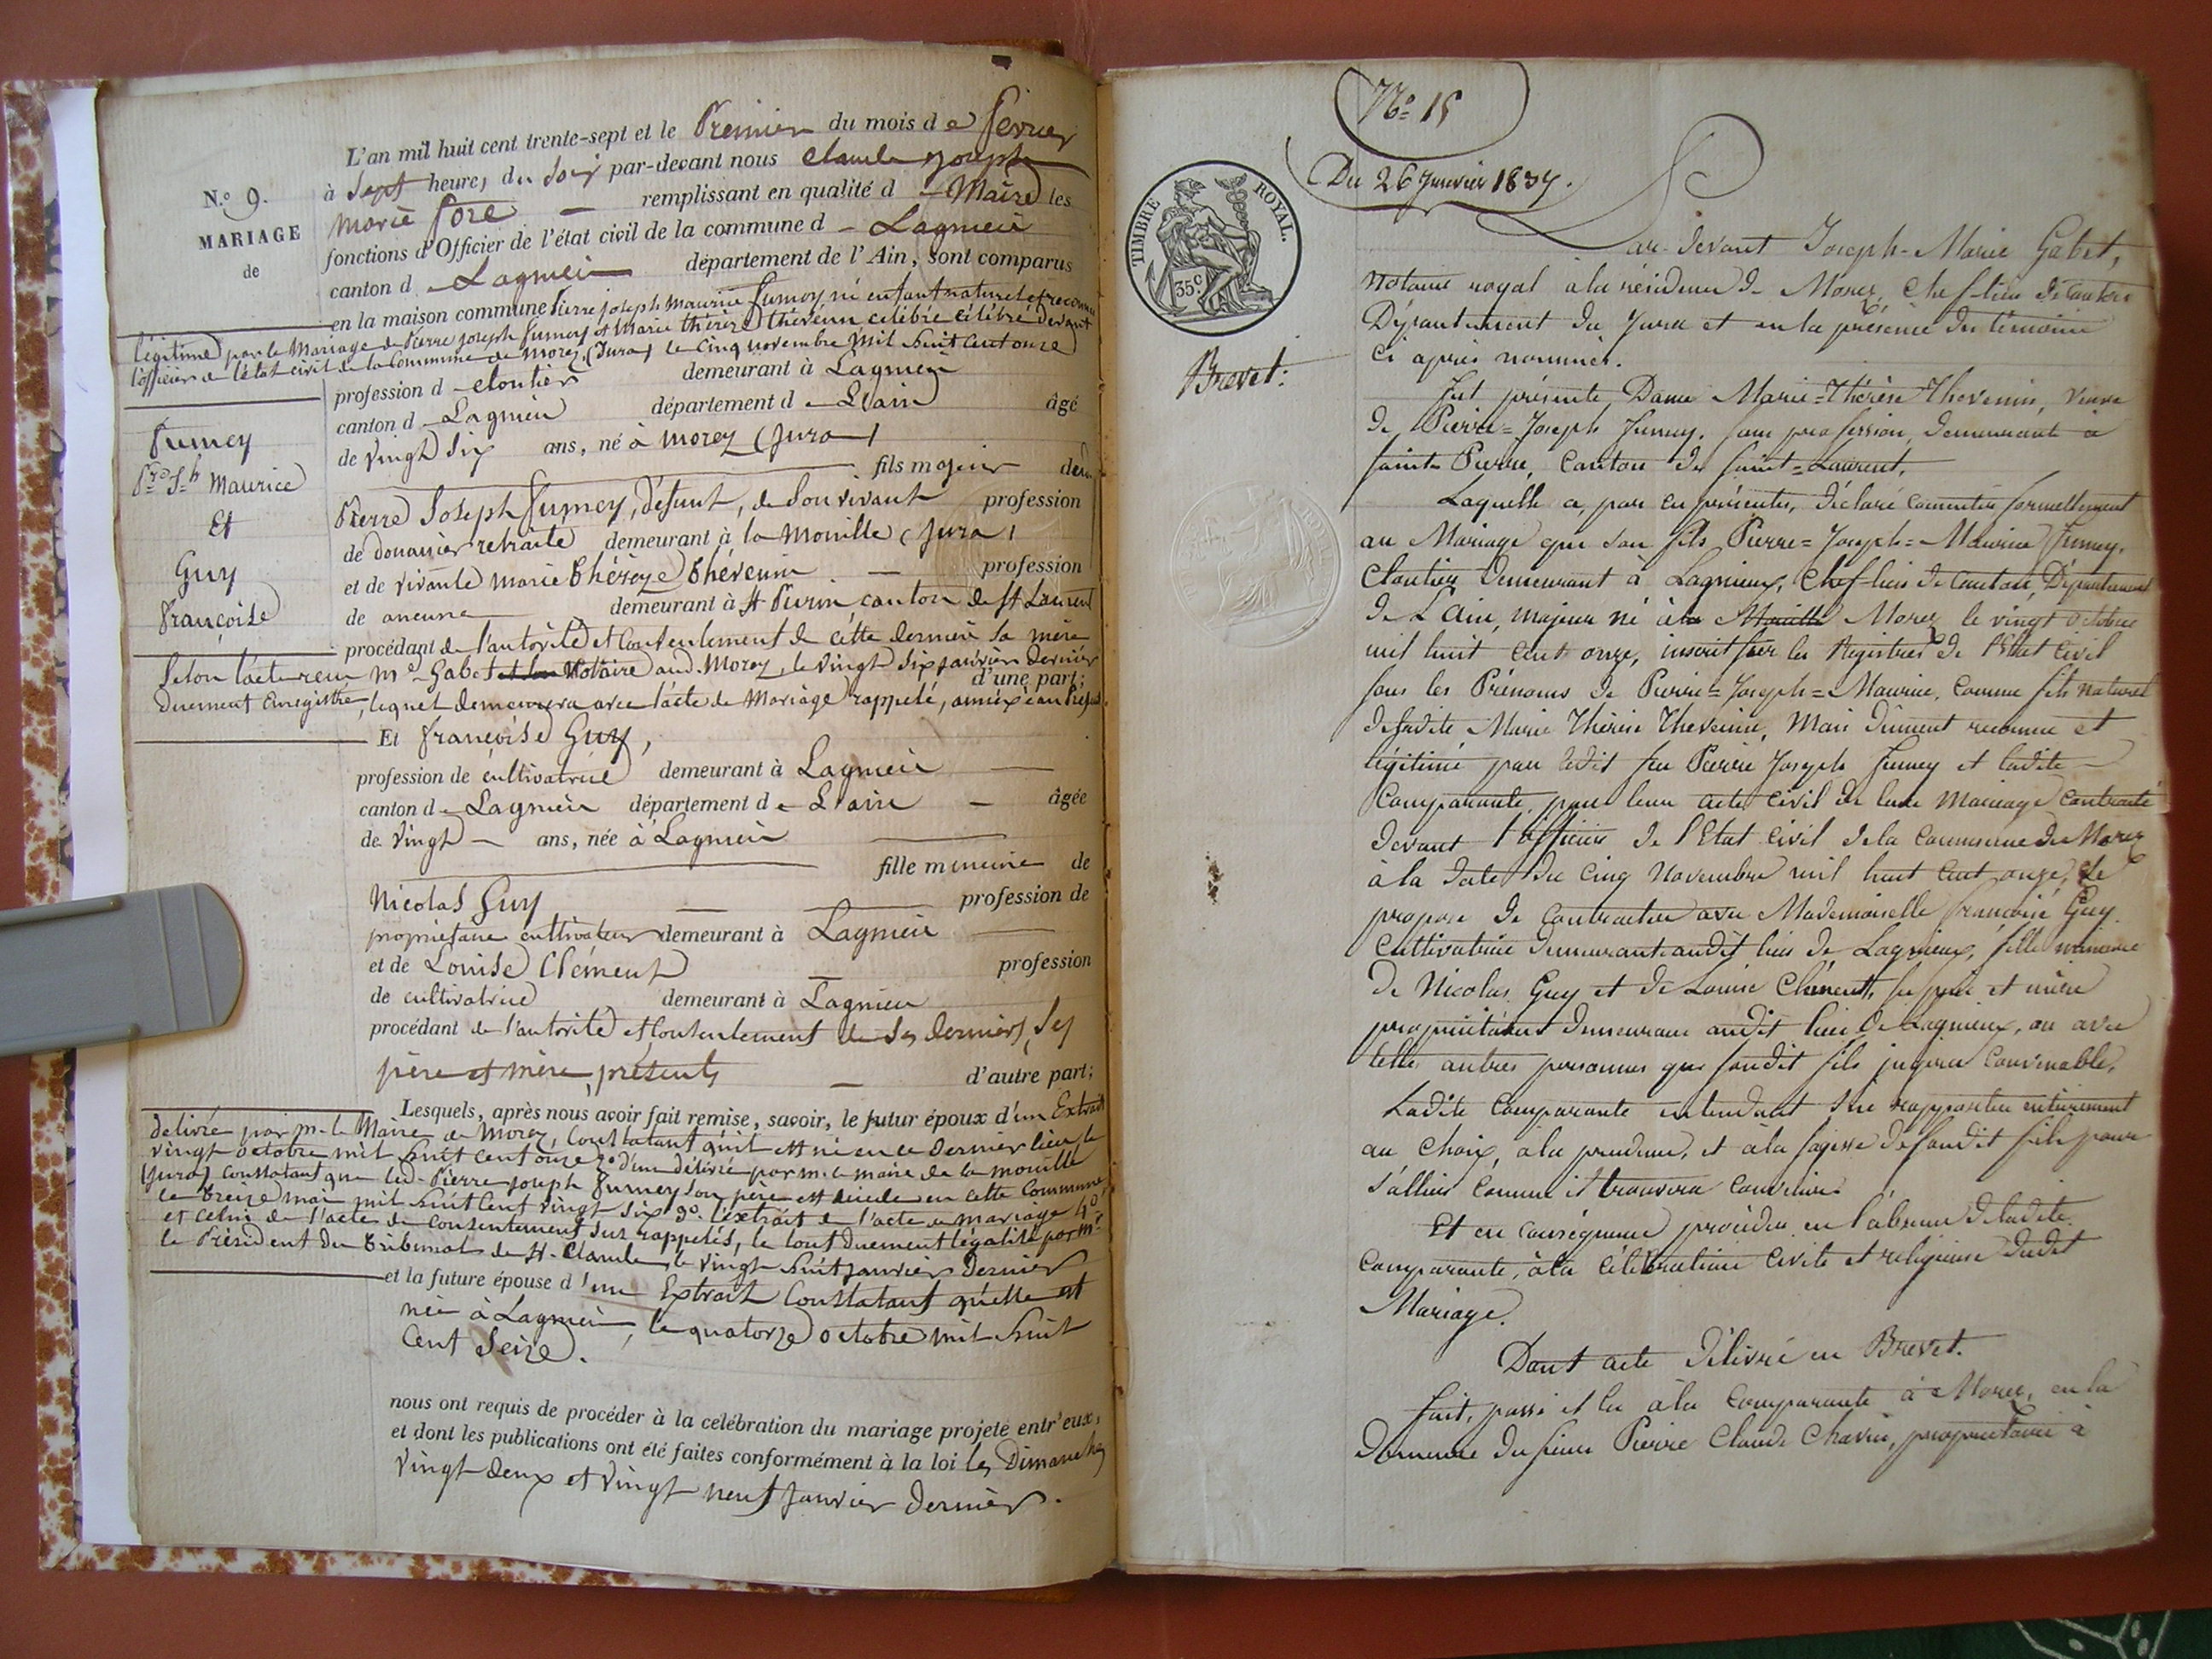 N.º 9.
MARIAGE
de
Fumey
P.re J.h Maurice
Et
Guy
françoise
L'an mil huit cent trente-sept et le Premier du mois de fevrier
à Sept heures du Soir par-devant nous Claude Joseph
Marie remplissant en qualité d - Maire les
fonctions d'Officier de l'état civil de la commune d - Lagnieu
canton d - Lagnieu département de l'Ain, sont comparus
en la maison commune Pierre joseph Maurice fumey, né enfant naturel et reconnu
légitimé par le Mariage de Pierre joseph fumey et Marie thérèse thévenin célébré célébré devant
l'officier de l'état civil de la Commune de Morez (Jura) le Cinq novembre Mil huit Cent onze
profession d - cloutier demeurant à Lagnieu
canton d - Lagnieu département d - L'ain âgé
de vingt Six ans, né à Morez (Jura)
fils majeur de
Pierre Joseph fumey, défunt, de Son vivant profession
de douanier retraité demeurant à la Mouille (Jura)
et de vivante Marie thérèze thévenin - profession
de aucune demeurant à St Pierre canton de St Laurent
procédant de l'autorité et Consentement de cette dernière Sa mère
Selon l'acte reçu Me Gabet Notaire aud. Morez, le vingt Six janvier dernier d'une part;
duement Enregistré, lequel demeurera avec l'acte de Mariage rappelé, annéxé au
Et françoise Guy,
profession de cultivatrice demeurant à Lagnieu
canton d - Lagnieu département d - L'ain - âgée
de Vingt - ans, née à Lagnieu
fille mineure de
Nicolas Guy profession de
propriétaire cultivateur demeurant à Lagnieu
et de Louise Clément profession
de cultivatrice demeurant à Lagnieu
procédant de l'autorité et Consentement de Ses derniers, Ses
père et mère, présents - d'autre part;
Lesquels, après nous avoir fait remise, savoir, le futur époux d'un Extrait
délivré par M. le Maire de Morez, Constatant qu'il est né en ce dernier lieu le
vingt octobre mil huit Cent onze 2º d'un délivré par M. le maire de la Mouille
(Jura) Constatant que led. Pierre joseph fumey Son père est décédé en cette Commune
le treize mai mil huit Cent vingt Six 3º. l'extrait de l'acte de mariage 4º.
et celui de l'acte de Consentement Sus rappelés, le tout duement légalisé par Mr.
le Président du tribunal de St. Claude le vingt huit janvier dernier
et la future épouse d'un Extrait Constatant qu'elle est
née à Lagnieu, le quatorze octobre mil huit
Cent Seize.
nous ont requis de procéder à la celébration du mariage projeté entr'eux,
et dont les publications ont été faites conformément à la loi les Dimanches
Vingt deux et Vingt neuf janvier dernier.
Nº 15
Du 26 Janvier 1837.
TIMBRE ROYAL.
35 c
Brevet:
Par-devant Joseph-Marie Gabet,
Notaire royal à la résidence de Morez, Chef-lieu de Canton
Département du Jura et en la présence des témoins
Ci après nommés.
Fut présente Dame Marie=Thérèse Thevenin, Veuve
de Pierre=Joseph Fumey, sans profession, demeurante à
Saint Pierre, Canton de Saint=Laurent,
Laquelle a, par ces présentes, déclaré consentir formellement
au Mariage que son fils Pierre=Joseph=Maurice Fumey,
Cloutier demeurant à Lagnieux, Chef-lieu de Canton, Département
de L'Ain, majeur né à la Mouille Morez le vingt Octobre
mil huit cent onze, inscrit sur les Registres de l'Etat Civil
sous les Prénoms de Pierre=Joseph=Maurice, comme fils naturel
de ladite Marie Thérèse Thevenin, Mais dûment reconnu et
légitimé par ledit feu Pierre Joseph Fumey et ladite
Comparante, par leur acte civil de leur Mariage Contracté
devant l'officier de l'Etat Civil de la Commune de Morez
à la date du Cinq Novembre mil huit Cent onze, se
propose de Contracter avec Mademoiselle Françoise Guy
Cultivatrice demeurant audit lieu de Lagnieux, fille mineure
de Nicolas Guy et de Louise Clément, ses père et mère
propriétaires demeurant audit lieu de Lagnieux, ou avec
telles autres personnes que sondit fils jugera Convenable,
Ladite Comparante entendant s'en rapporter entièrement
au Choix, à la prudence, et à la sagesse de sondit fils pour
s'allier comme il trouvera convenir.
Et en conséquence procéder en l'absence de ladite
Comparante, à la Célébration Civile et religieuse dudit
Mariage.
Dont acte Délivré en Brevet.
Fait, passé et lu à la Comparante à Morez, en la
demeure du sieur Pierre Claude Chavin, propriétaire à